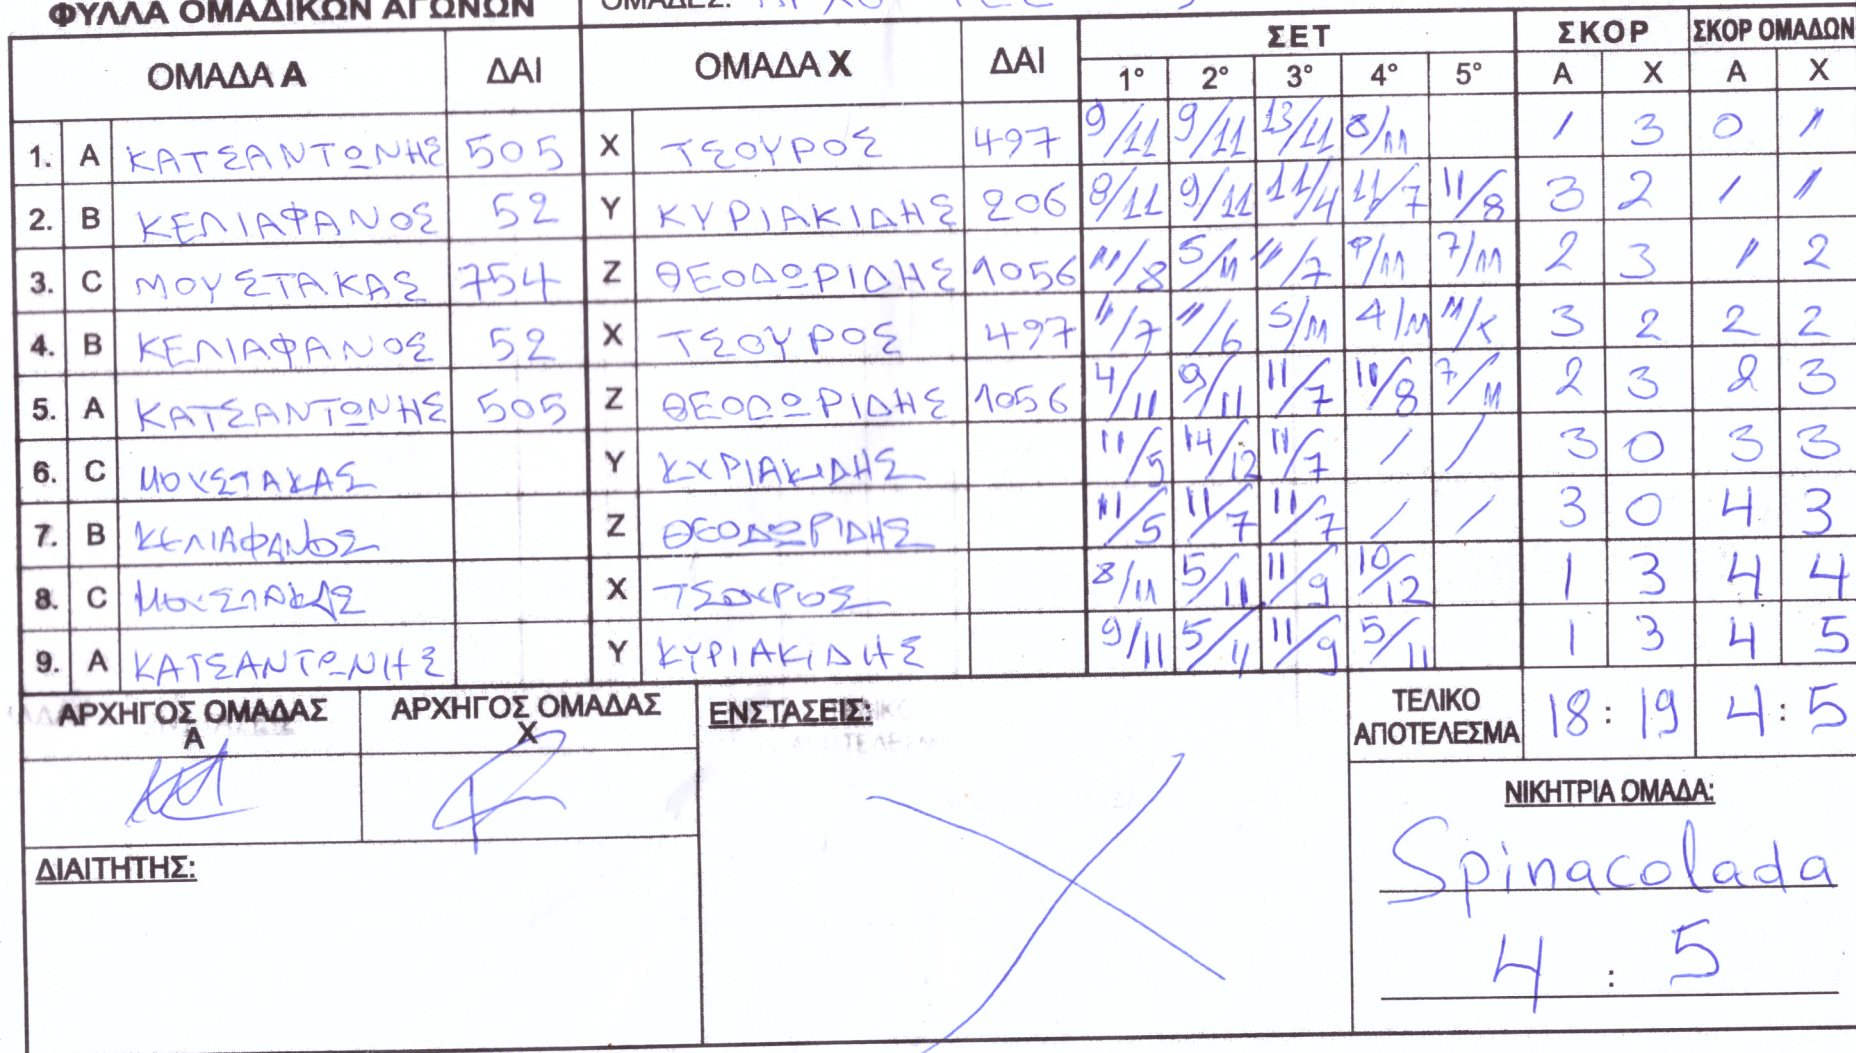 ΦΥΛΛΑ ΟΜΑΔΙΚΩΝ ΑΓΩΝΩΝ ΟΜΑΔΕΣ:
ΟΜΑΔΑ Α ΔΑΙ ΟΜΑΔΑ Χ ΔΑΙ ΣΕΤ ΣΚΟΡ ΣΚΟΡ ΟΜΑΔΩΝ
1° 2° 3° 4° 5° Α Χ Α Χ
1. A ΚΑΤΣΑΝΤΩΝΗΣ 505 X ΤΣΟΥΡΟΣ 497 9/11 9/11 13/11 8/11 1 3 0 1
2. B ΚΕΛΙΑΦΑΝΟΣ 52 Y ΚΥΡΙΑΚΙΔΗΣ 206 8/11 9/11 11/4 11/7 11/8 3 2 1 1
3. C ΜΟΥΣΤΑΚΑΣ 754 Z ΘΕΟΔΩΡΙΔΗΣ 1056 11/8 5/11 11/7 9/11 7/11 2 3 1 2
4. B ΚΕΛΙΑΦΑΝΟΣ 52 X ΤΣΟΥΡΟΣ 497 11/7 11/6 5/11 4/11 3 2 2 2
5. A ΚΑΤΣΑΝΤΩΝΗΣ 505 Z ΘΕΟΔΩΡΙΔΗΣ 1056 4/11 9/11 11/7 11/8 7/11 2 3 2 3
6. C ΜΟΥΣΤΑΚΑΣ Y ΚΥΡΙΑΚΙΔΗΣ 11/5 14/12 11/7 / / 3 0 3 3
7. B ΚΕΛΙΑΦΑΝΟΣ Z ΘΕΟΔΩΡΙΔΗΣ 11/5 11/7 11/7 / / 3 0 4 3
8. C ΜΟΥΣΤΑΚΑΣ X ΤΣΟΥΡΟΣ 8/11 5/11 11/9 10/12 1 3 4 4
9. A ΚΑΤΣΑΝΤΩΝΗΣ Y ΚΥΡΙΑΚΙΔΗΣ 9/11 5/11 11/9 5/11 1 3 4 5
ΑΡΧΗΓΟΣ ΟΜΑΔΑΣ Α ΑΡΧΗΓΟΣ ΟΜΑΔΑΣ Χ ΕΝΣΤΑΣΕΙΣ: ΤΕΛΙΚΟ ΑΠΟΤΕΛΕΣΜΑ 18 : 19 4 : 5
ΝΙΚΗΤΡΙΑ ΟΜΑΔΑ:
Spinacolada
ΔΙΑΙΤΗΤΗΣ:
4 : 5